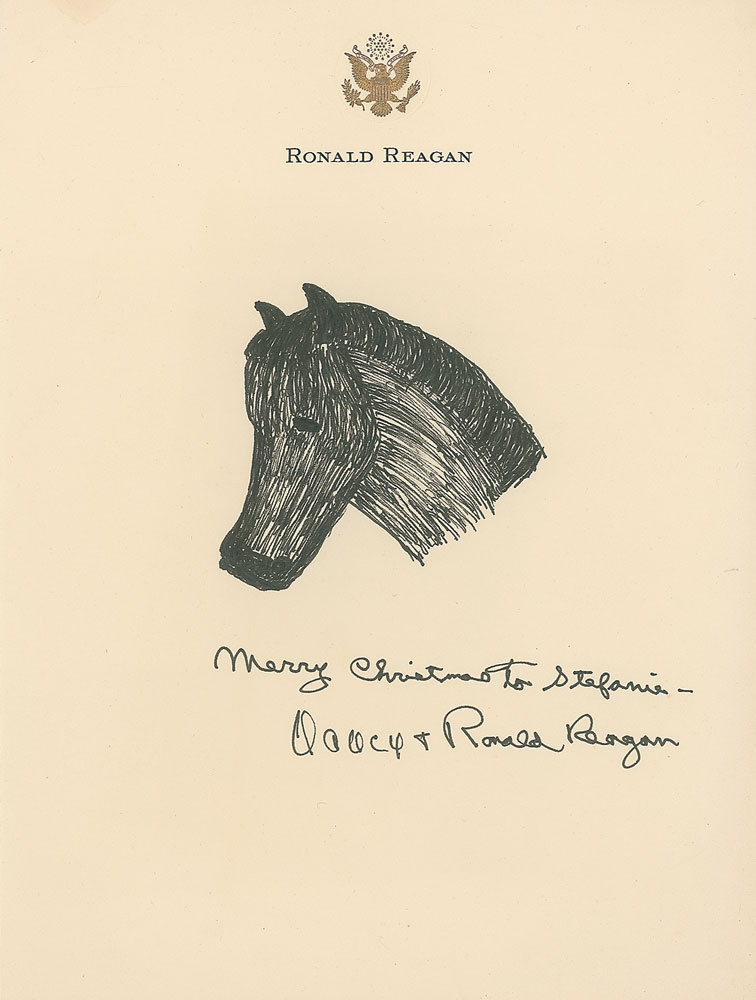 RONALD REAGAN
Merry Christmas to Stefanie –
Nancy + Ronald Reagan